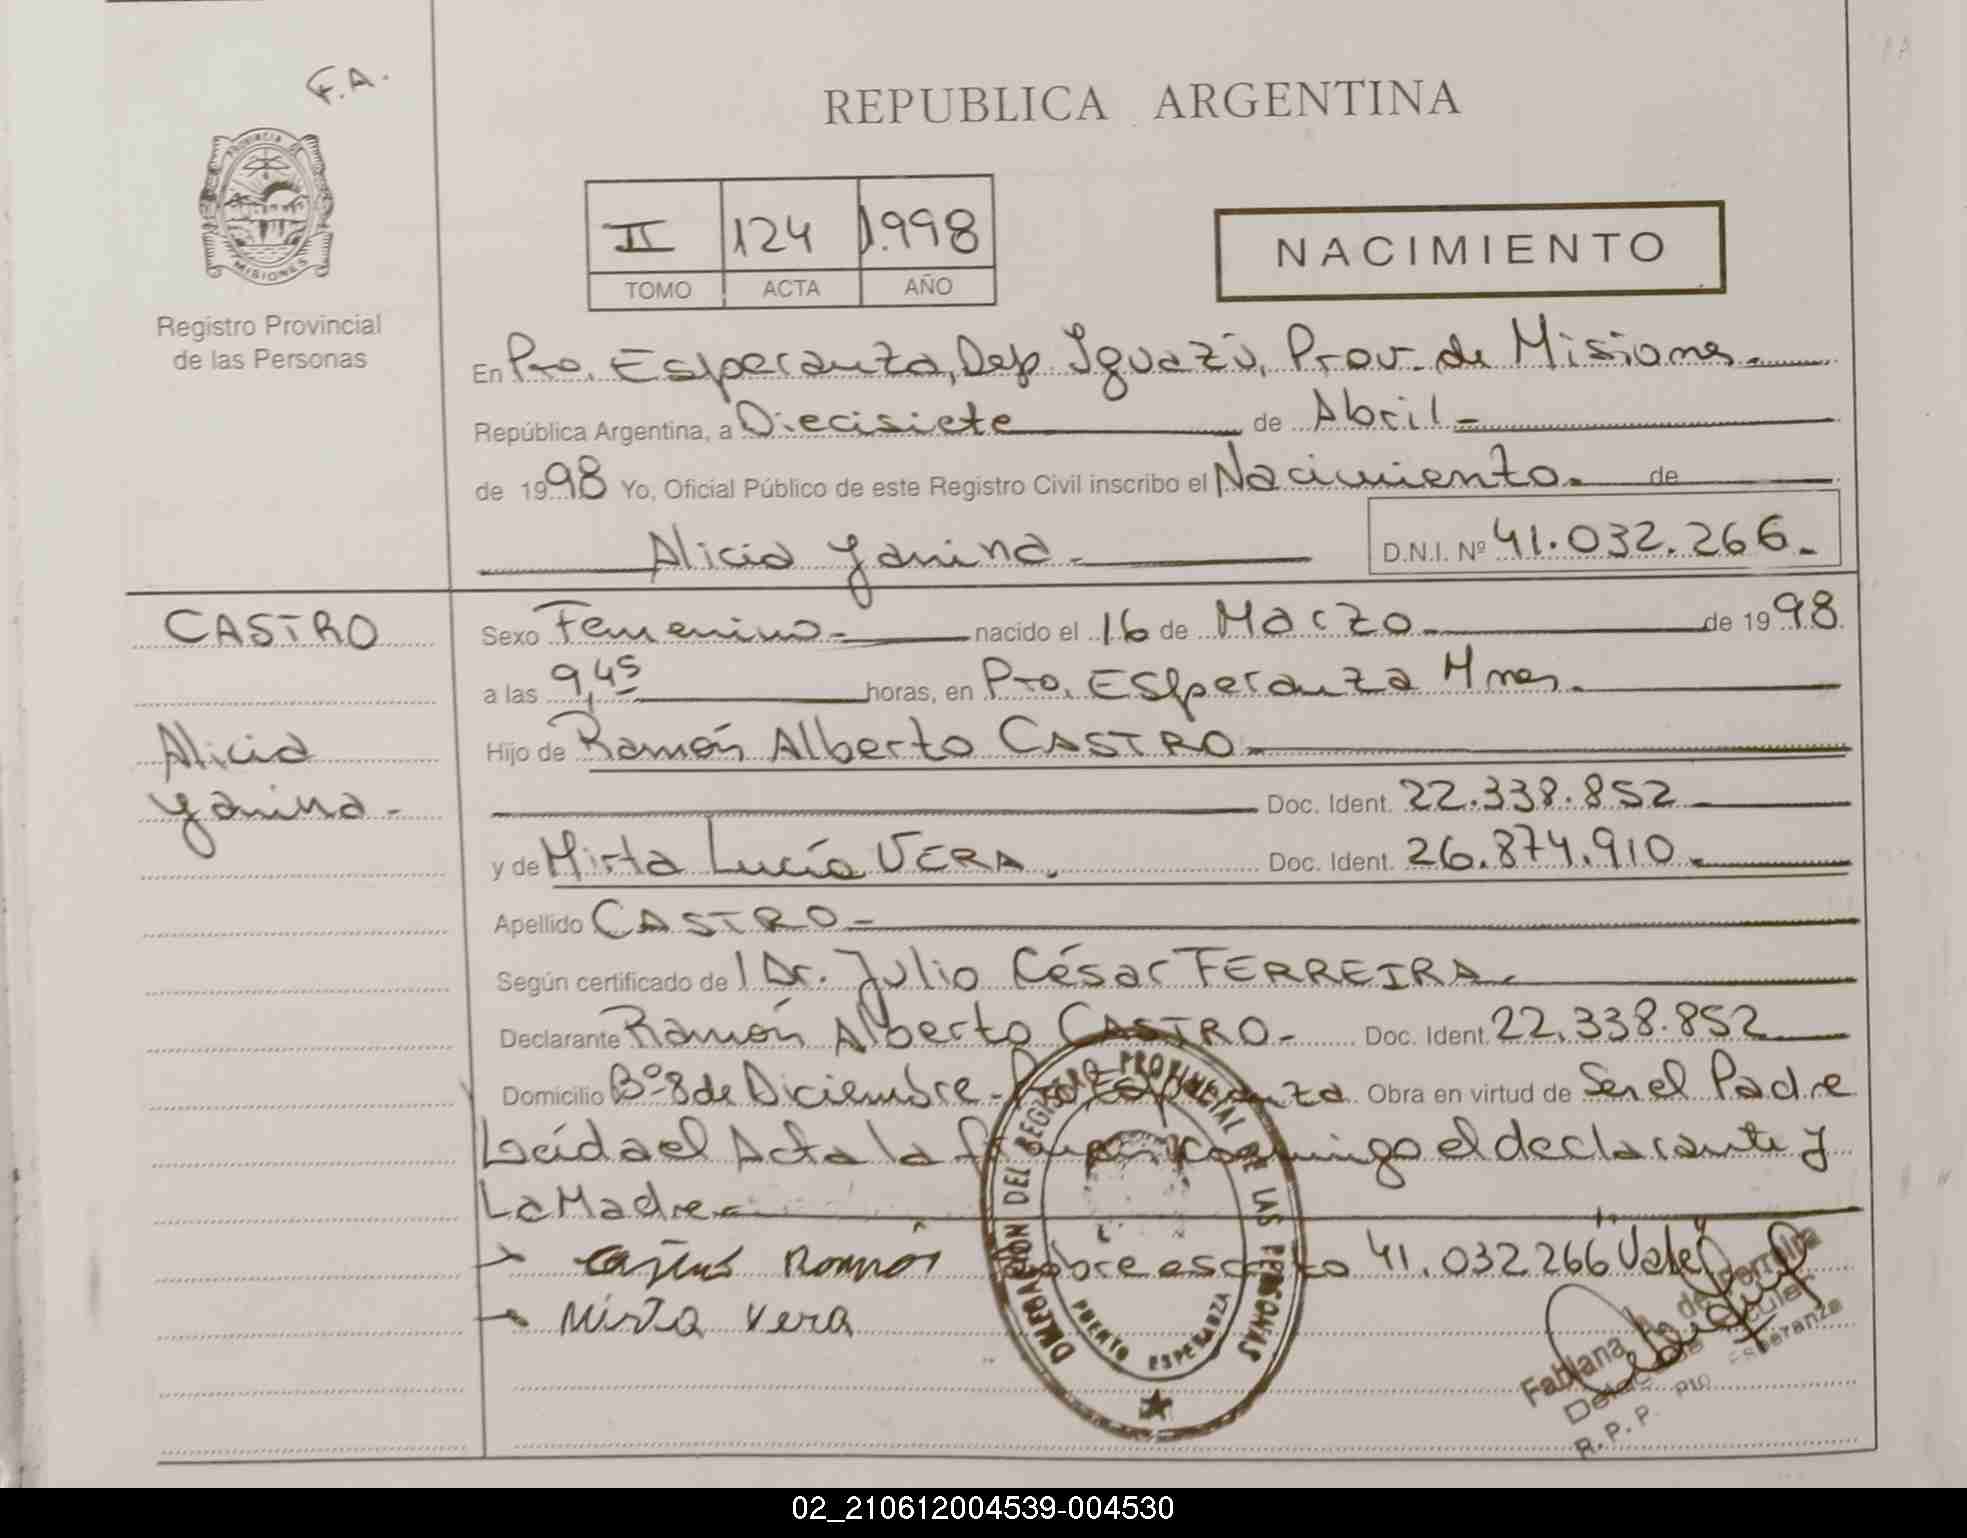 F.A.
REPUBLICA ARGENTINA
PROVINCIA DE
MISIONES
Registro Provincial
de las Personas
II 124 1.998
TOMO ACTA AÑO
NACIMIENTO
En Pto. Esperanza, Dep. Iguazú, Prov. de Misiones.
República Argentina, a Diecisiete de Abril
de 1998 Yo, Oficial Público de este Registro Civil inscribo el Nacimiento. de
Alicia Yanina D.N.I. Nº 41.032.266.
CASTRO
Alicia
Yanina
Sexo Femenino nacido el 16 de Marzo de 1998
a las 9,45 horas, en Pto. Esperanza Mnes.
Hijo de Ramón Alberto CASTRO
Doc. Ident. 22.338.852
y de Mirta Lucía VERA. Doc. Ident. 26.874.910.
Apellido CASTRO
Según certificado de l Dr. Julio César FERREIRA.
Declarante Ramón Alberto CASTRO Doc. Ident. 22.338.852
Domicilio Bº 8 de Diciembre - Pto. Esperanza Obra en virtud de Ser el Padre
Leída el Acta la firman conmigo el declarante y
La Madre
Ramón Sobre escrito 41.032.266 Vale
Mirta Vera
DELEGACIÓN DEL REGISTRO PROVINCIAL DE LAS PERSONAS
PUERTO ESPERANZA
Fabiana A. de
R.P.P. Pto Esperanza
02_210612004539-004530